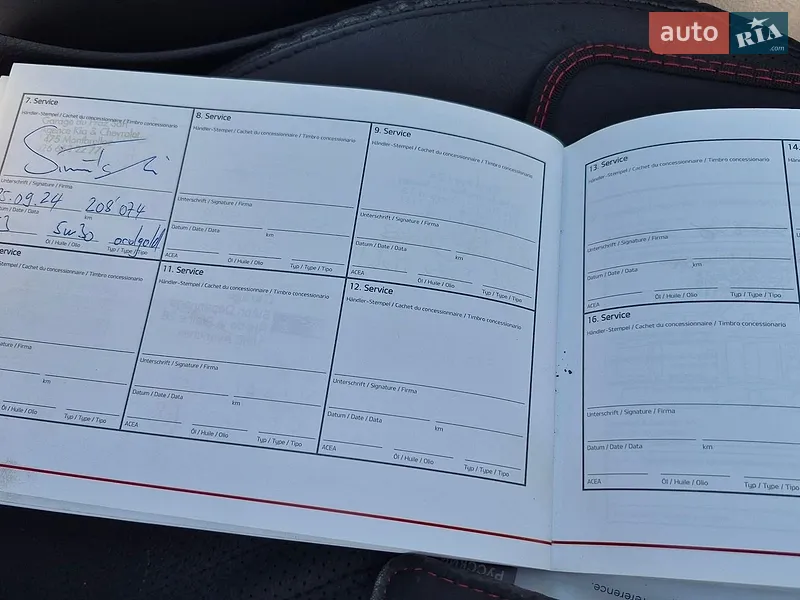 auto RIA .com
7. Service
Händler-Stempel / Cachet du concessionnaire / Timbro concessionario
Agence Kia & Chevrolet
Unterschrift / Signature / Firma
5.09.24 208'074
Datum / Date / Data km
5w30
Öl / Huile / Olio Typ / Type / Tipo
8. Service
Händler-Stempel / Cachet du concessionnaire / Timbro concessionario
Unterschrift / Signature / Firma
Datum / Date / Data km
ACEA Öl / Huile / Olio Typ / Type / Tipo
9. Service
Händler-Stempel / Cachet du concessionnaire / Timbro concessionario
Unterschrift / Signature / Firma
Datum / Date / Data km
ACEA Öl / Huile / Olio Typ / Type / Tipo
ervice
Händler-Stempel / Cachet du concessionnaire / Timbro concessionario
ature / Firma
/ Data km
Öl / Huile / Olio Typ / Type / Tipo
11. Service
Händler-Stempel / Cachet du concessionnaire / Timbro concessionario
Unterschrift / Signature / Firma
Datum / Date / Data km
ACEA Öl / Huile / Olio Typ / Type / Tipo
12. Service
Händler-Stempel / Cachet du concessionnaire / Timbro concessionario
Unterschrift / Signature / Firma
Datum / Date / Data km
ACEA Öl / Huile / Olio Typ / Type / Tipo
13. Service
Händler-Stempel / Cachet du concessionnaire / Timbro concessionario
Unterschrift / Signature / Firma
Datum / Date / Data km
ACEA Öl / Huile / Olio Typ / Type / Tipo
14.
16. Service
Händler-Stempel / Cachet du concessionnaire / Timbro concessionario
Unterschrift / Signature / Firma
Datum / Date / Data km
ACEA Öl / Huile / Olio Typ / Type / Tipo
reference.